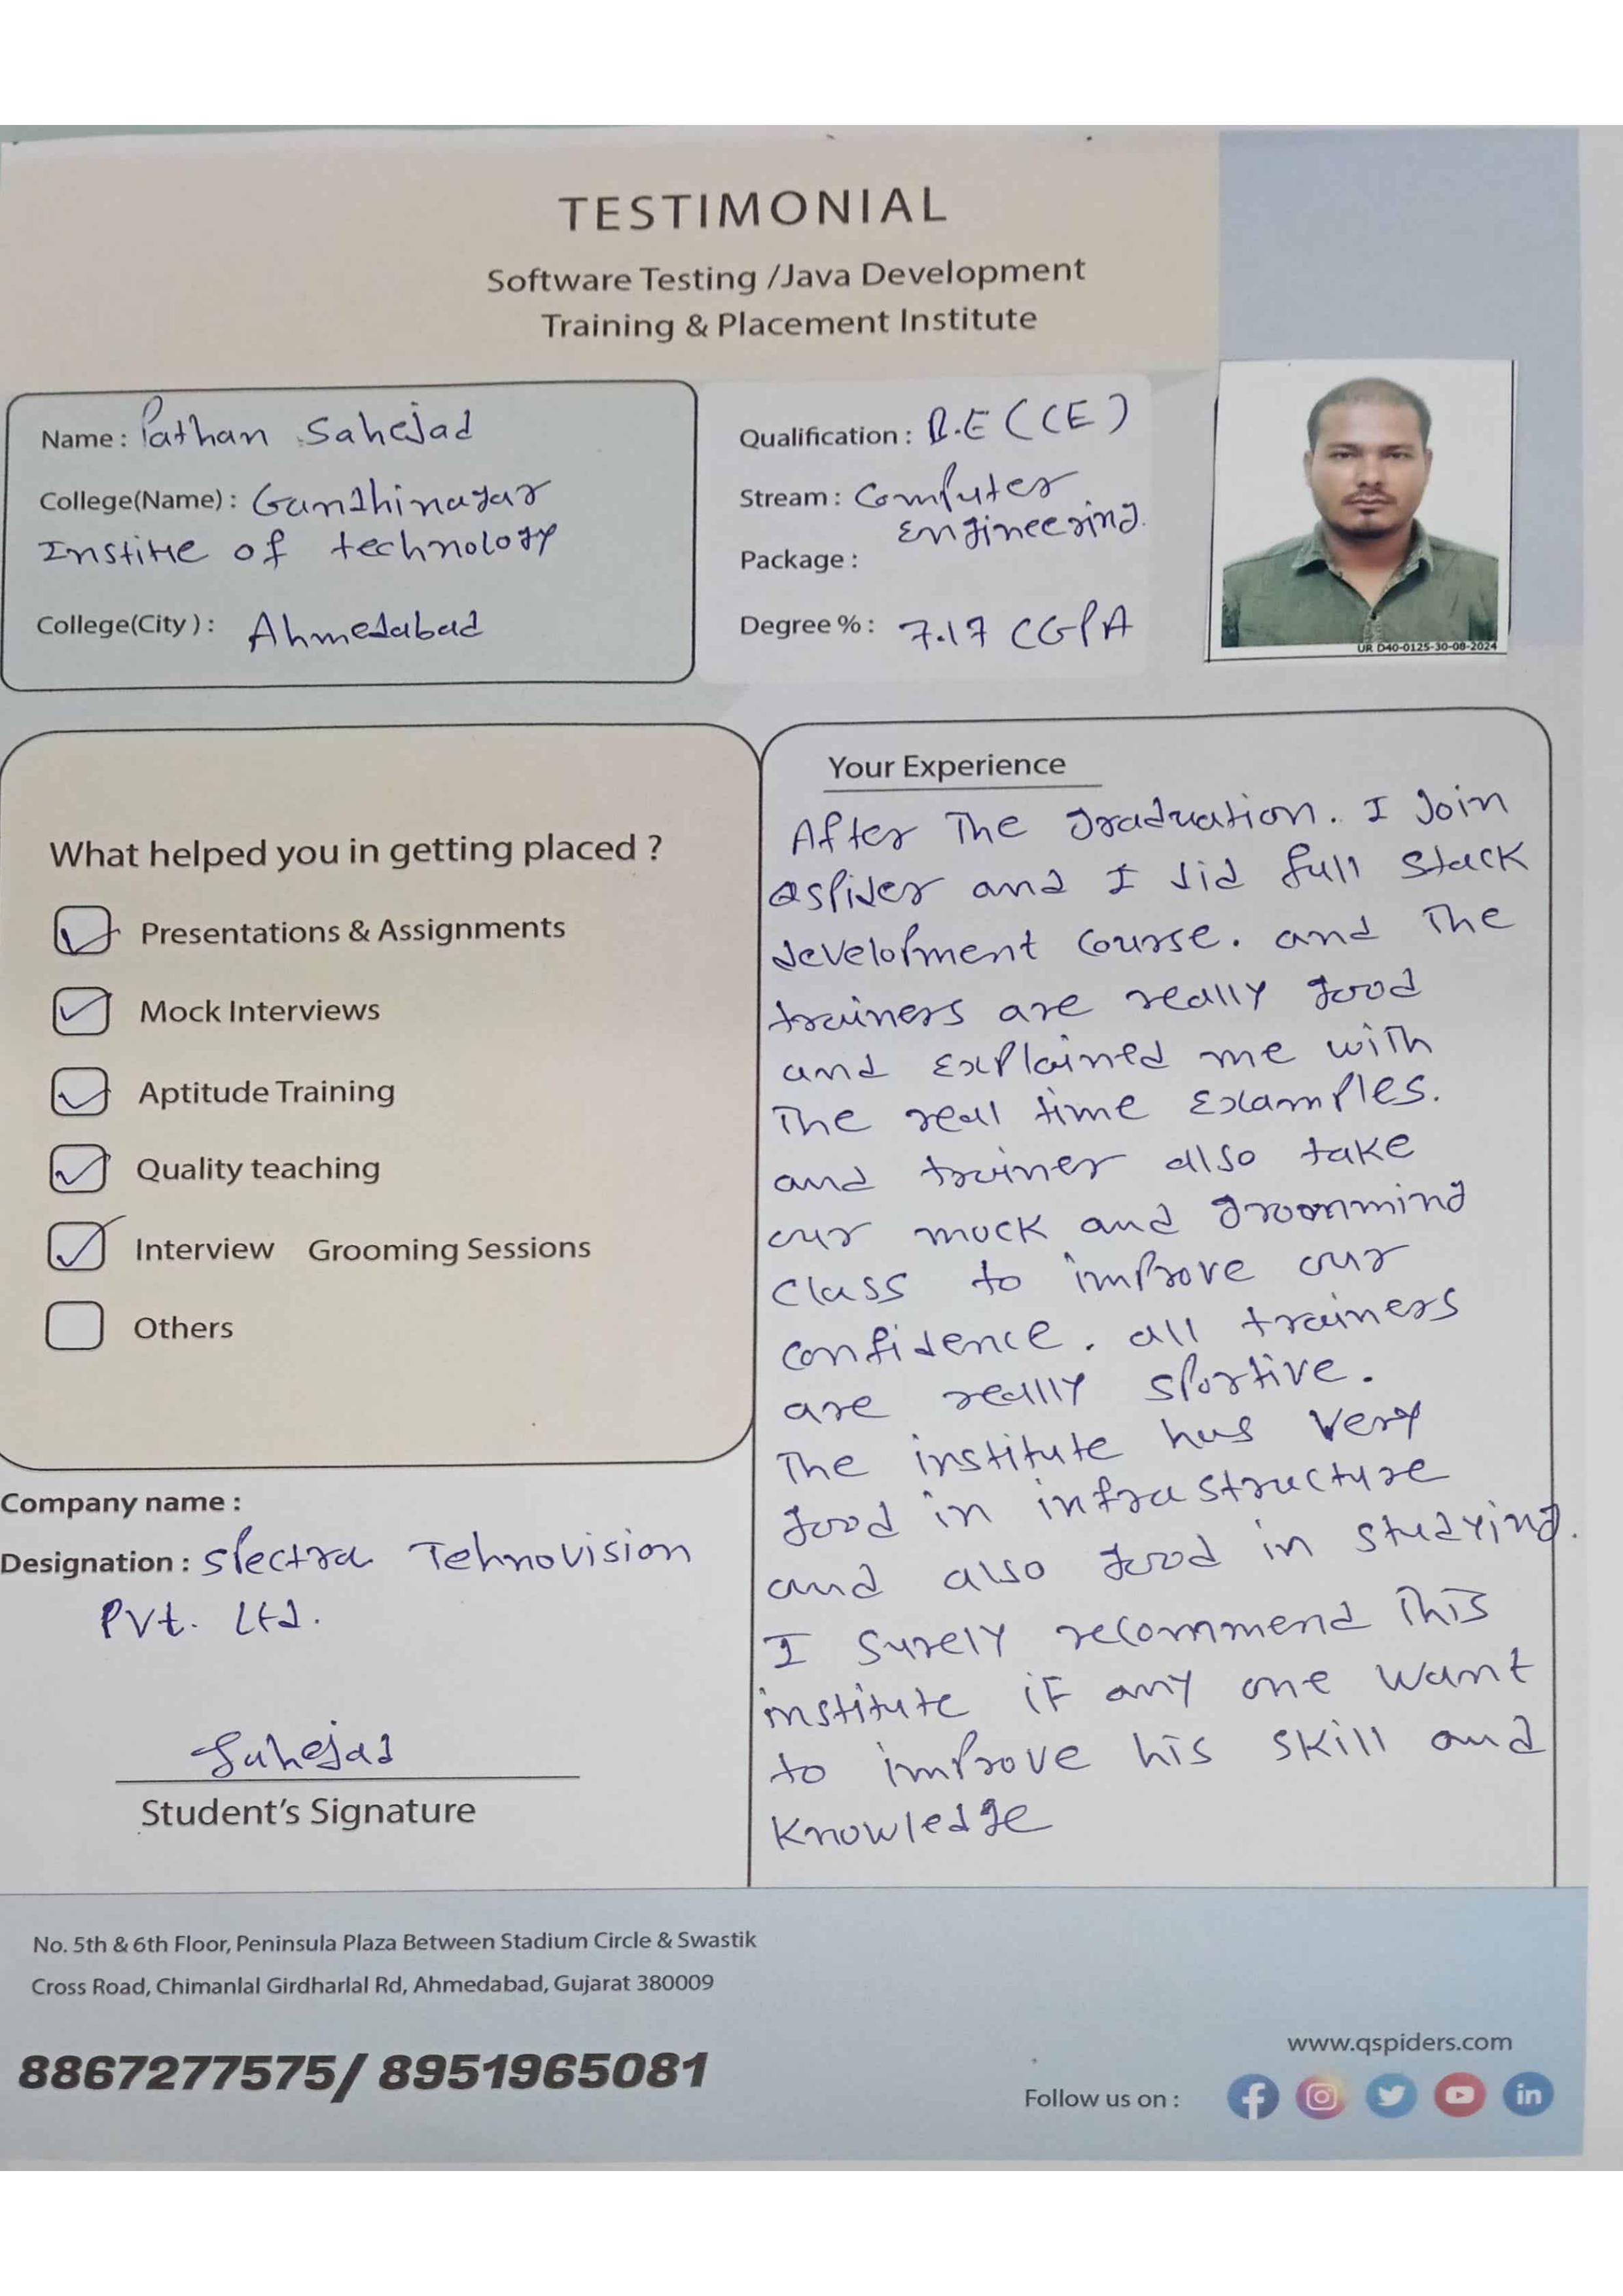 TESTIMONIAL
Software Testing /Java Development
Training & Placement Institute
Name : Pathan Sahejad
College(Name) : Gandhinagar
Institue of technology
College(City) : Ahmedabad
Qualification : B.E (CE)
Stream : Computer
Engineering.
Package :
Degree % : 7.17 CGPA
UR D40-0125-30-08-2024
What helped you in getting placed ?
Presentations & Assignments
Mock Interviews
Aptitude Training
Quality teaching
Interview Grooming Sessions
Others
Company name :
Designation : Spectra Tehnovision
Pvt. Ltd.
Sahejad
Student's Signature
Your Experience
After The graduation. I Join
Qspider and I did full stack
development course. and The
trainers are really good
and explained me with
The real time examples.
and trainer also take
our mock and groomming
class to improve our
confidence. all trainers
are really sportive.
The institute has very
good in infrastructure
and also good in studying.
I surely recommend This
institute if any one want
to improve his skill and
Knowledge
No. 5th & 6th Floor, Peninsula Plaza Between Stadium Circle & Swastik
Cross Road, Chimanlal Girdharlal Rd, Ahmedabad, Gujarat 380009
8867277575/ 8951965081
www.qspiders.com
Follow us on :